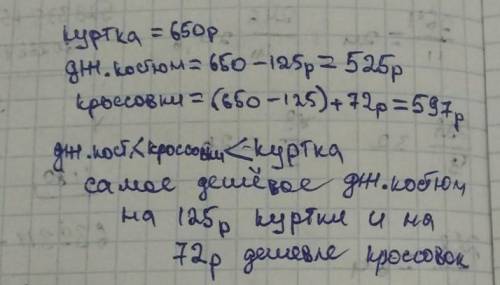 куртка = 650р
дж.костюм = 650 - 125р = 525р
кроссовки = (650 - 125) + 72р = 597р
дж.кост. < кроссовки < куртка
самое дешёвое дж.костюм
на 125р куртки и на
72р дешевле кроссовок